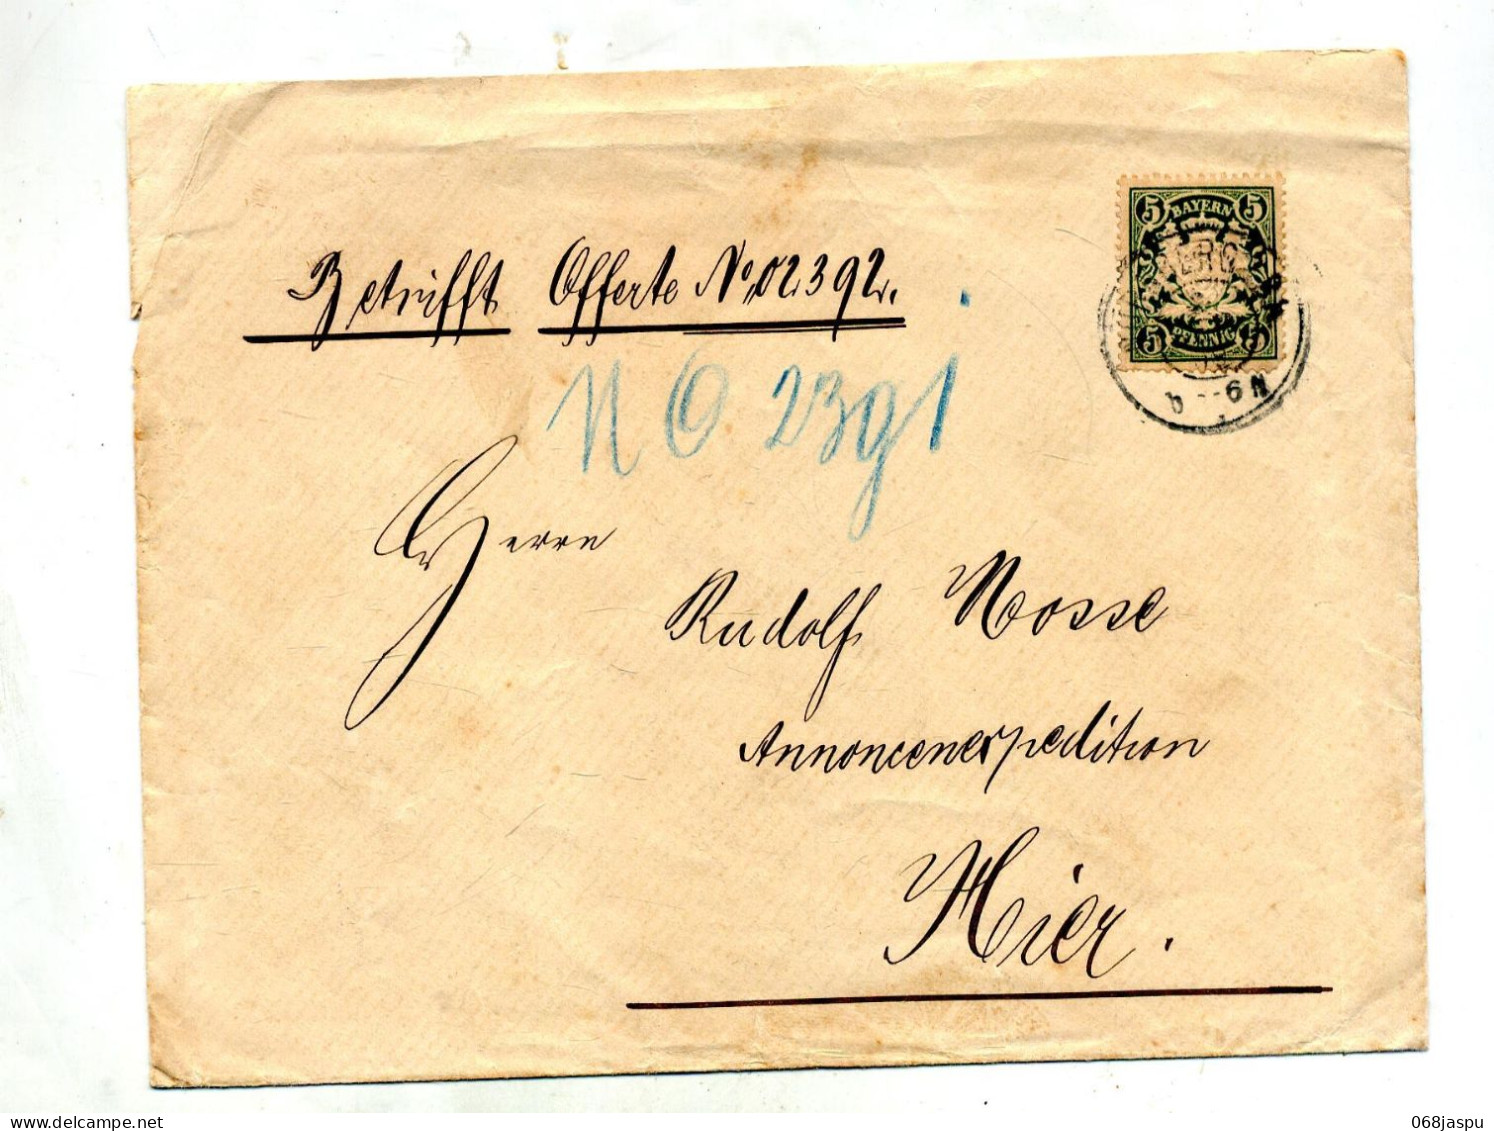 5 BAYERN 5
5 PFENNIG 5
6 N
Betrifft Offerte No. 02392.
N O 2391
Herrn
Rudolf Mosse
Annoncenexpedition
Hier.
delcampe.net
068jaspu